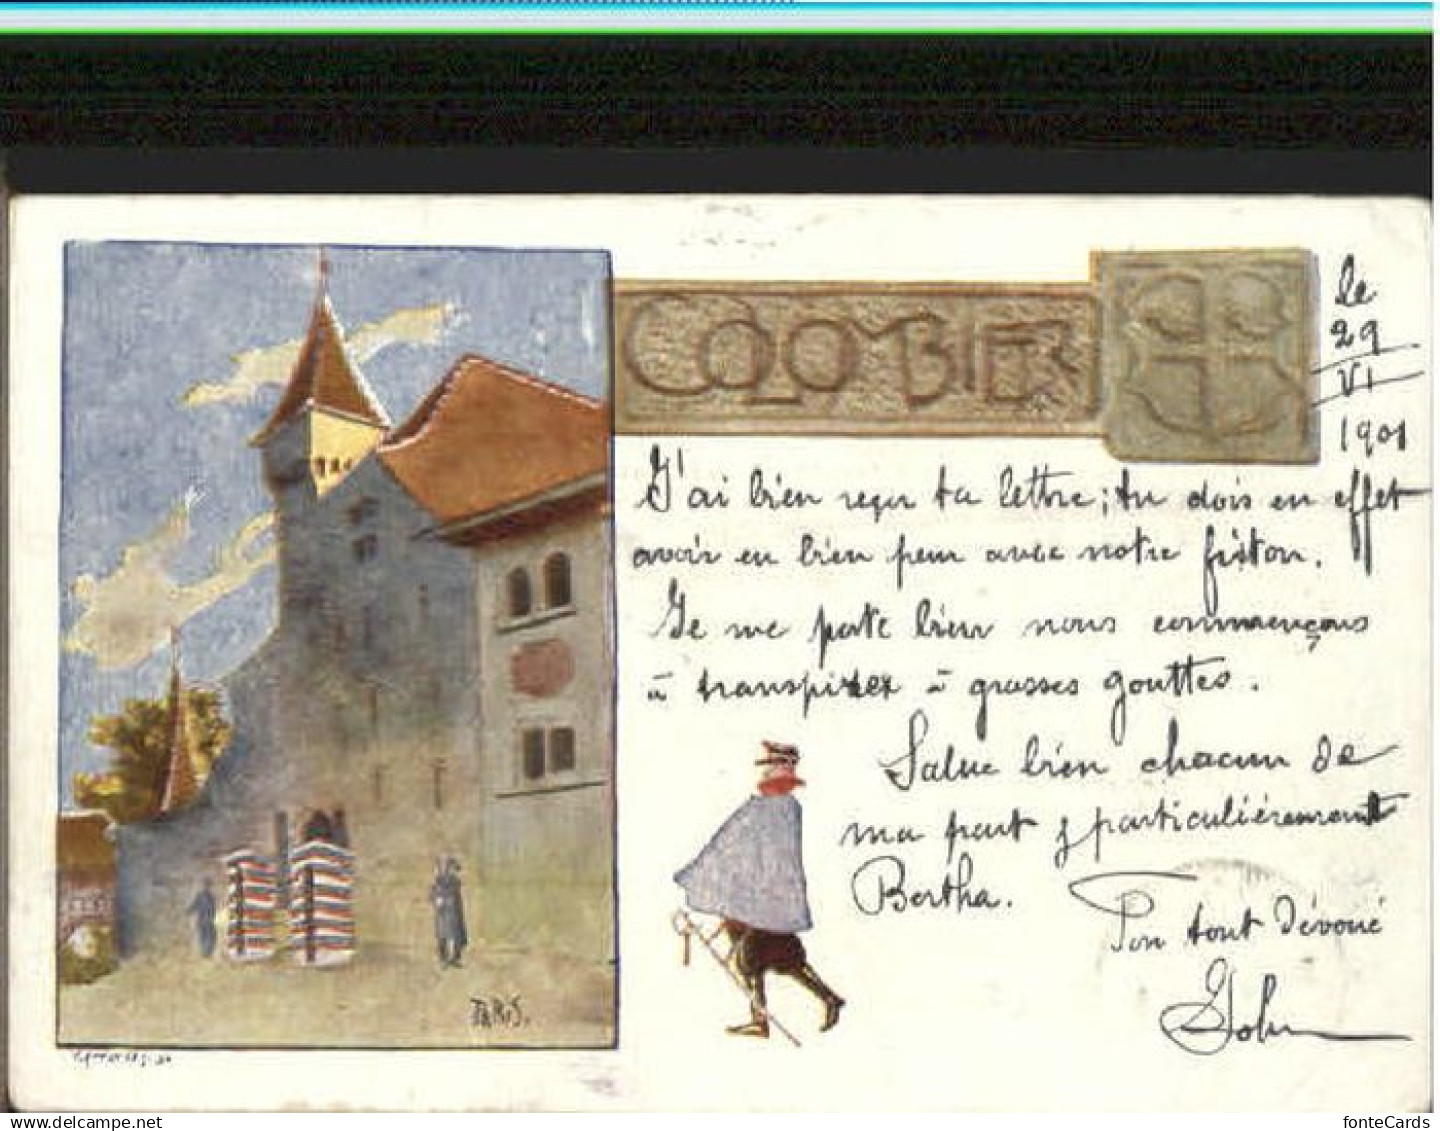 COLOMBIER
le
29
VI
1901
J'ai bien reçu ta lettre; tu dois en effet
avoir eu bien peur avec notre fiston.
Je me porte bien nous commençons
à transpirer à grosses gouttes.
Salue bien chacun de
ma part & particulièrement
Bertha.
Ton tout dévoué
John
PARIS.
fonteCards